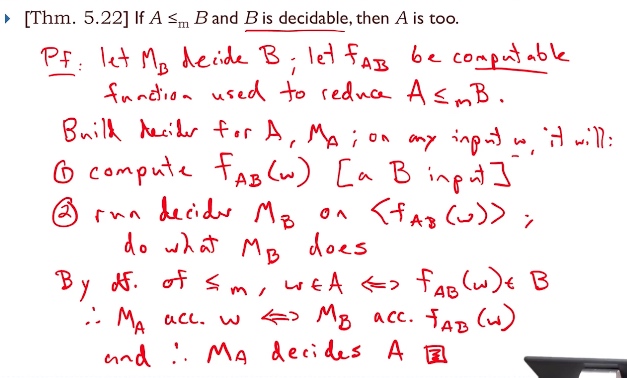 ▸ [Thm. 5.22] If A ≤m B and B is decidable, then A is too.
Pf: let M_B decide B; let f_AB be computable
function used to reduce A ≤m B.
Build decider for A, M_A; on any input w, it will:
① compute f_AB(w) [a B input]
② run decider M_B on <f_AB(w)>;
do what M_B does
By df. of ≤m, w∈A <=> f_AB(w)∈ B
∴ M_A acc. w <=> M_B acc. f_AB(w)
and ∴ M_A decides A